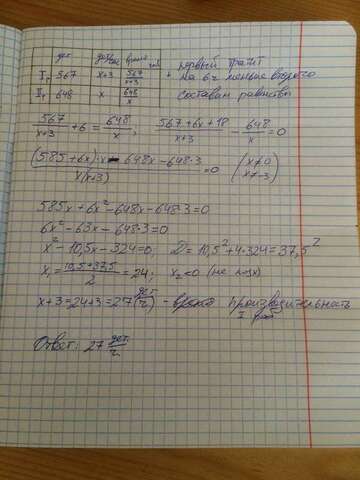 дет дет/час время час
I р 567 x+3 567/x+3 первый тратит
на 6ч меньше второго
II р 648 x 648/x составим равенство
567/x+3 + 6 = 648/x; 567+6x+18/x+3 - 648/x = 0
(585+6x)·x - 648x - 648·3/x(x+3) = 0 (x≠0 x≠-3)
585x+6x²-648x-648·3=0
6x²-63x-648·3=0
x²-10,5x-324=0; D=10,5²+4·324=37,5²
x₁=10,5+37,5/2=24; x₂<0 (не подх)
x+3=24+3=27(дет/ч) - производительность
I раб
Ответ: 27 дет/ч